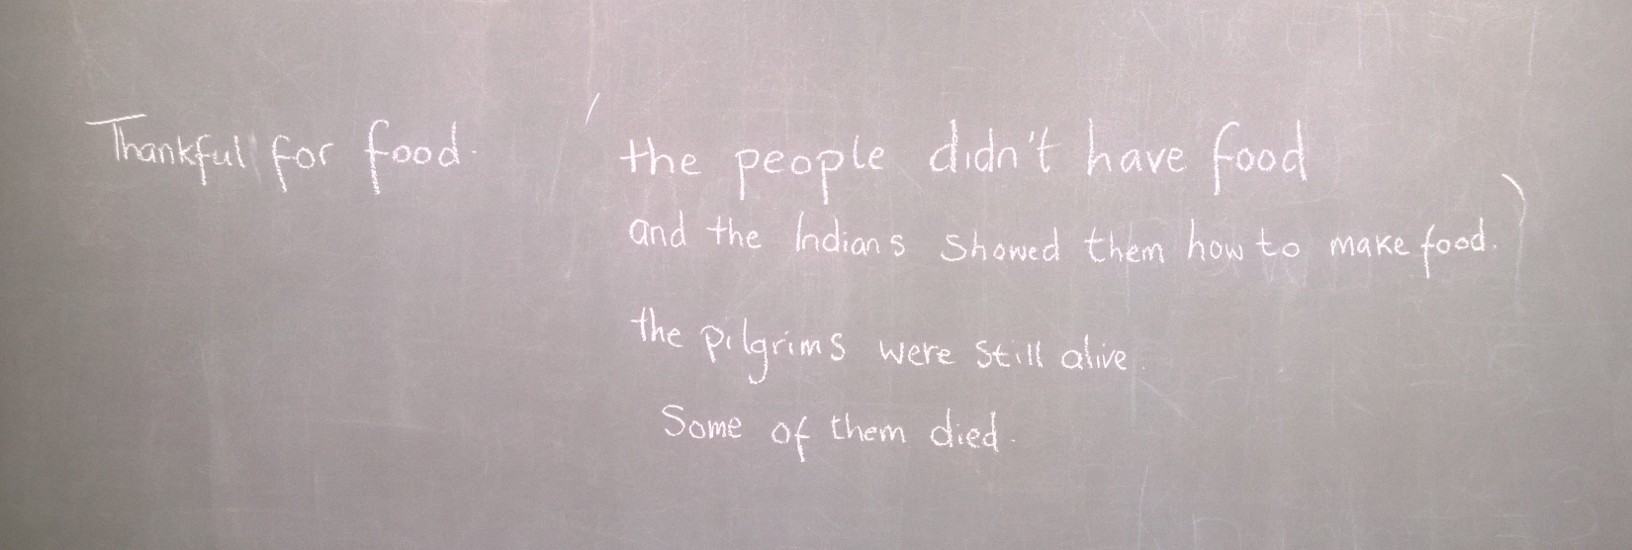 Thankful for food.
the people didn't have food
and the Indians showed them how to make food.
the pilgrims were still alive.
Some of them died.